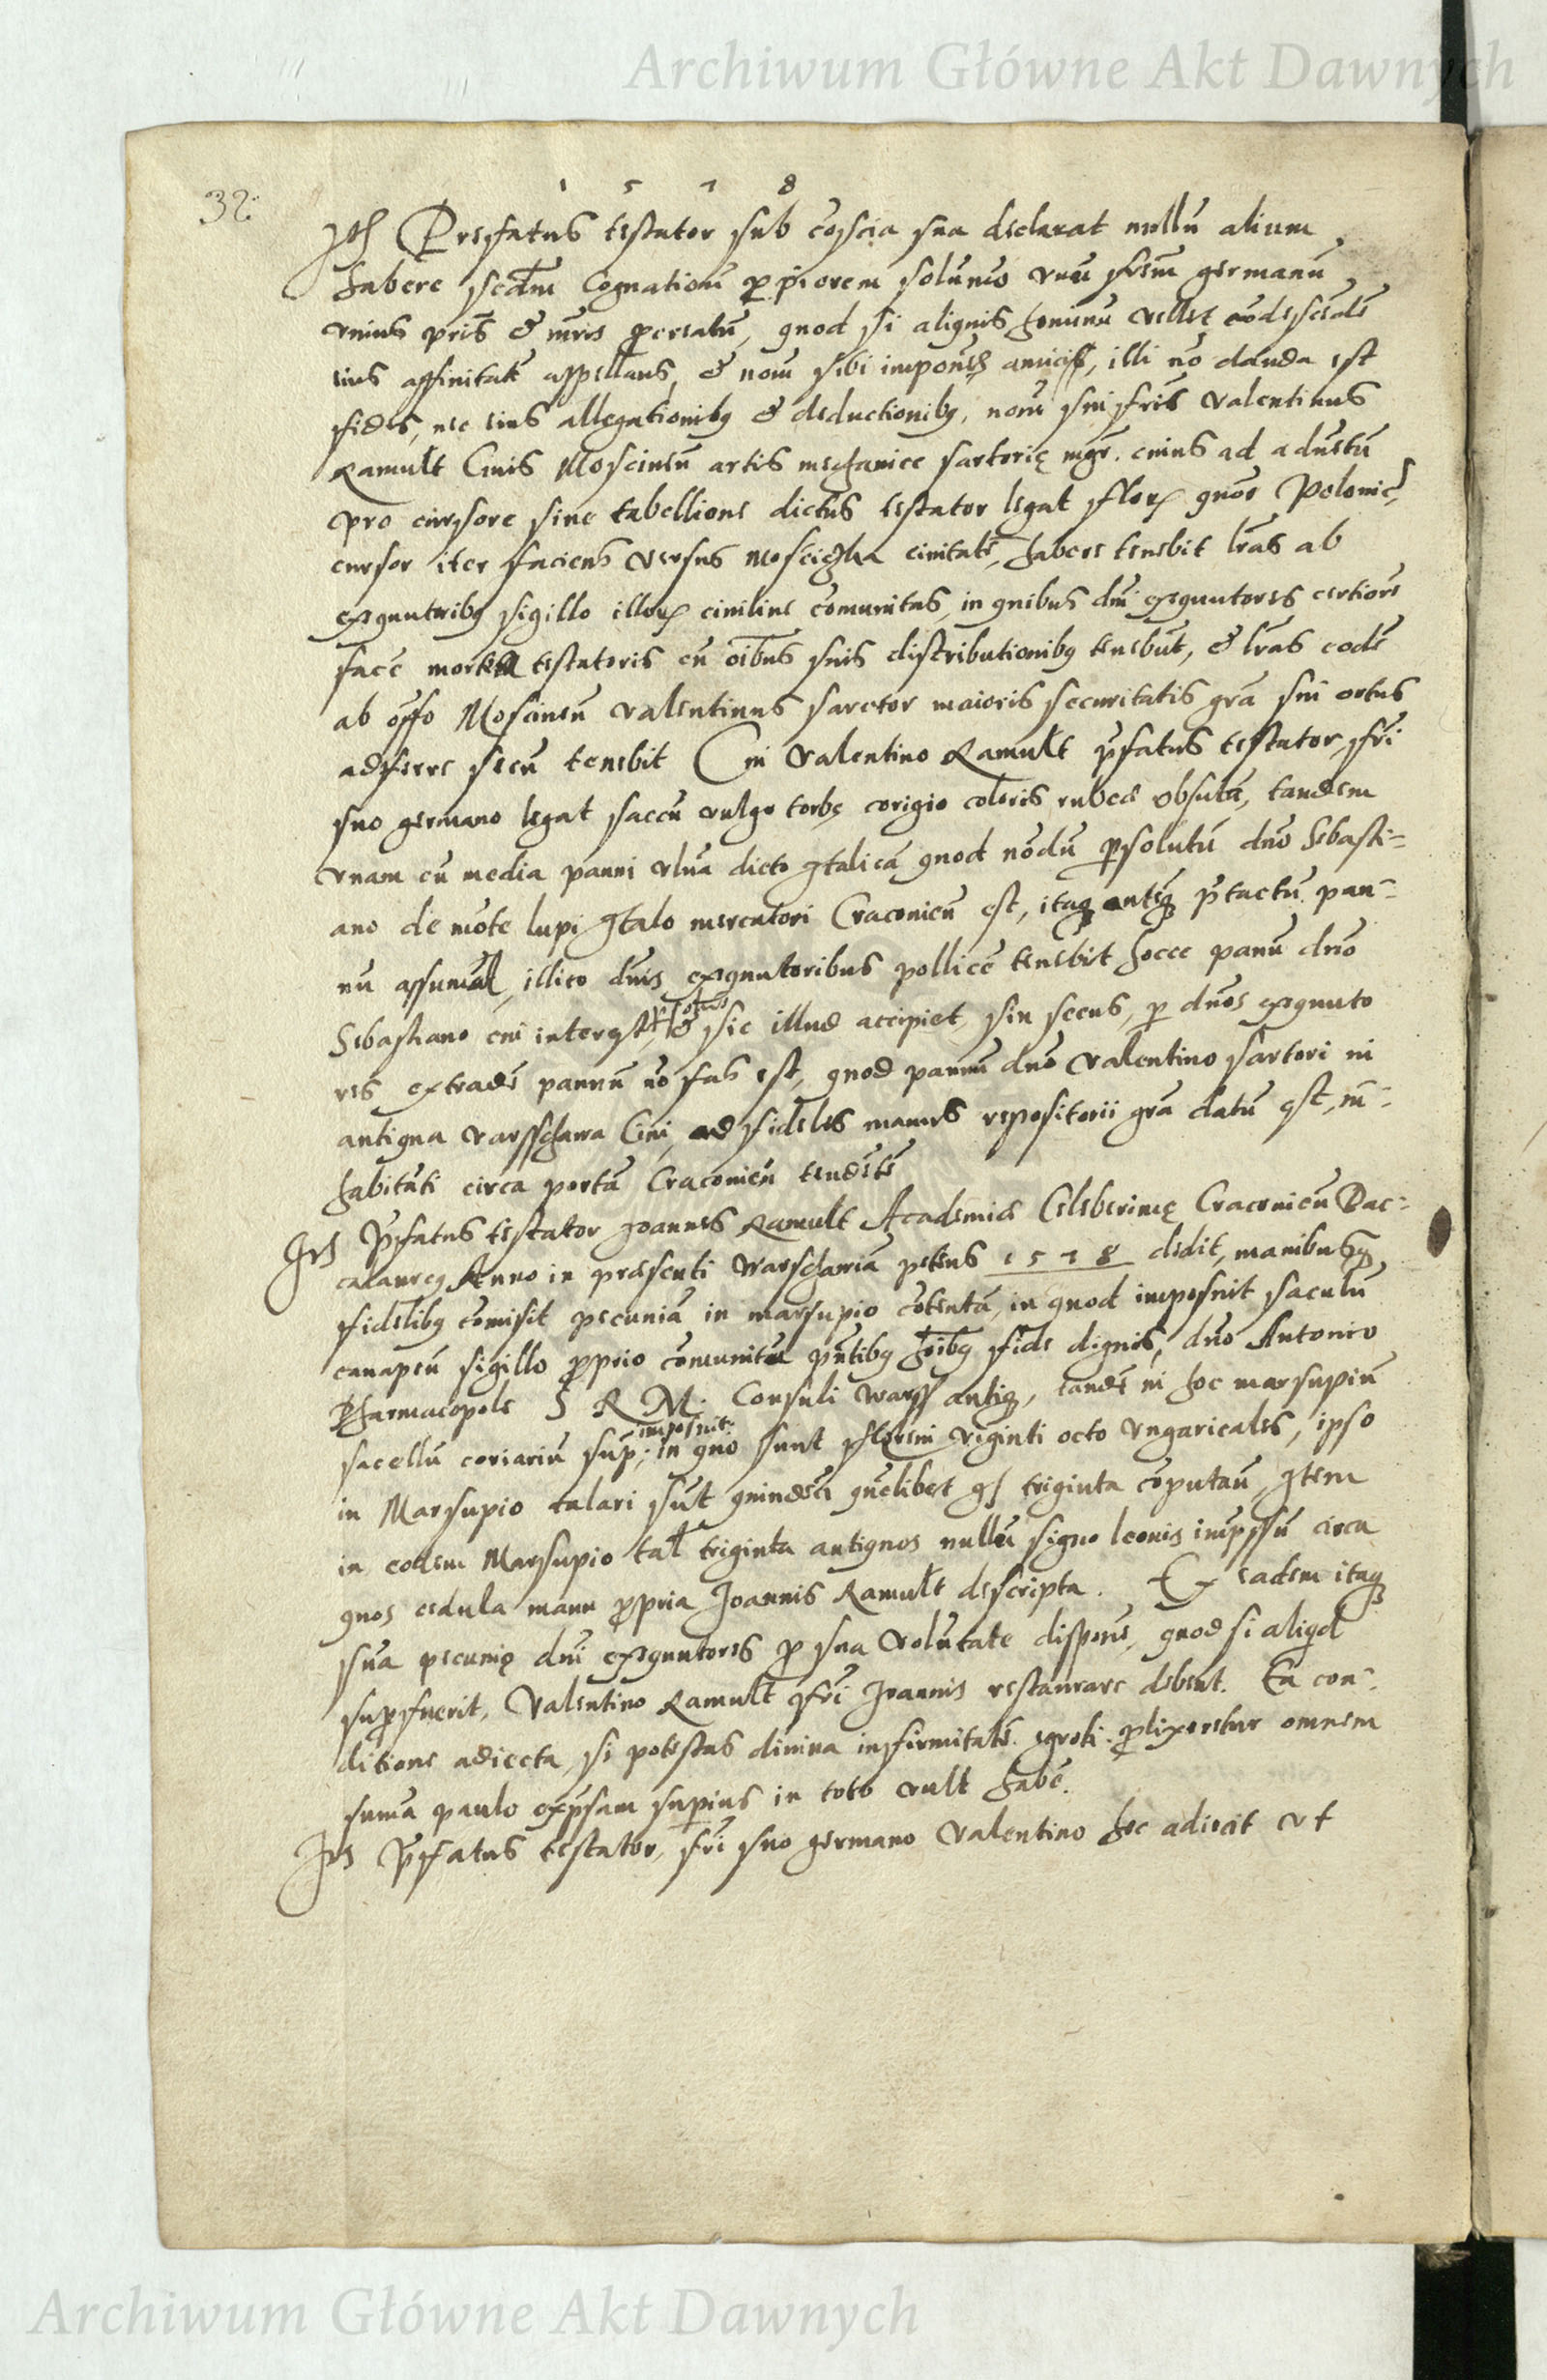 Archiwum Główne Akt Dawnych
32.
1 5 7 8
Itē Prefatus testator sub cōscia sua declarat nullū alium
habere scdm Cognationē ꝓpiorem solūmo vnū frēm germanū
vnius pris̄ & mris ꝓcreatū, quod si aliquis hominū vellet
eius affinitatē appellans, & nom̄ sibi imponēs amicis, illi nō danda est
fides, nec eius allegationibꝫ & deductionibꝫ, nom̄ sui fris̄ Valentinus
Ramult Ciuis Mosciceñ artis mechanice sartorię mgr̄. cuius ad aduētū
pro cursore siue tabellione dictus testator legat flor quor Polonic
cursor iter faciens versus Moscicha ciuitatē, habere tenebit lr̄as ab
exequutoribꝫ sigillo illor ciuiliue cōmunitas, in quibus dni exequutores certiorē
facē mortem testatoris cū oībus suis distributionibꝫ tenebūt, & lr̄as eodē
ab offo Mosciceñ Valentinus sarctor maioris securitatis gr̄a sui ortus
adferre secū tenebit Cui Valentino Ramult p̄fatus testator, fri
suo germano legat saccū vulgo torbę corigio coloris rubei obsutā, tandem
vnam cū media panni vlnā dicto Italicā quod nōdū ꝑsolutū dn̄o Sebasti=
ano de mōte lupi Italo mercatori Cracouieñ est, itaqꝫ anteqꝫ p̄tactū pan=
nū assumat, illico dn̄is exequutoribus pollicē tenebit hocce panū dn̄o
Sebastiano cui interest, & sic illud accipiet, sin secus, ꝑ dn̄os exequuto
res extradē pannū nō fas est, quod pannū dn̄o Valentino sartori in
antiqua varsschawa Ciui, ad fideles manus repositorii gr̄a datū est, in=
habitāti circa portā Cracouieñ tendētē
Itē p̄fatus testator Joannes Ramult Academiæ Celeberimę Cracouieñ Bac=
calaureꝯ Anno in præsenti Warschauiā petens 1578 dedit, manibusqꝫ
fidelibꝫ cōmisit pecuniā in marsupio cōtentā, in quod imposuit saculū
canapeū sigillo ꝓprio cōmunitū p̄ntibꝫ hoībꝫ fide dignis, dn̄o Antonio
Pharmacopole S R M. Consuli Warss antiq, tandē in hoc marsupiū
imposuit:
sacellū coriariū sup; in quo sunt floreni viginti octo vngaricales, ipso
in Marsupio talari sūt quindeci quēlibet gs triginta cōputañ Item
in eodem Marsupio tal triginta antiquos nullū signo leonis impssū circa
quos cedula manu ꝓpria Joannis Ramult descripta. Ex eadem itaqꝫ
sua pecunię dn̄i exequutores ꝓ sua volūtate disponē, quod si aliqd
suꝑfuerit, Valentino Ramult fri Joannis restaurare debent. Ea con=
ditione adiecta, si potestas diuina infirmitatē egroti ꝓlixeretur omnem
sumā paulo exp̄ssam superius in toto vult habē.
Itē p̄fatus testator, fri suo germano Valentino hoc adiicit vt
Archiwum Główne Akt Dawnych